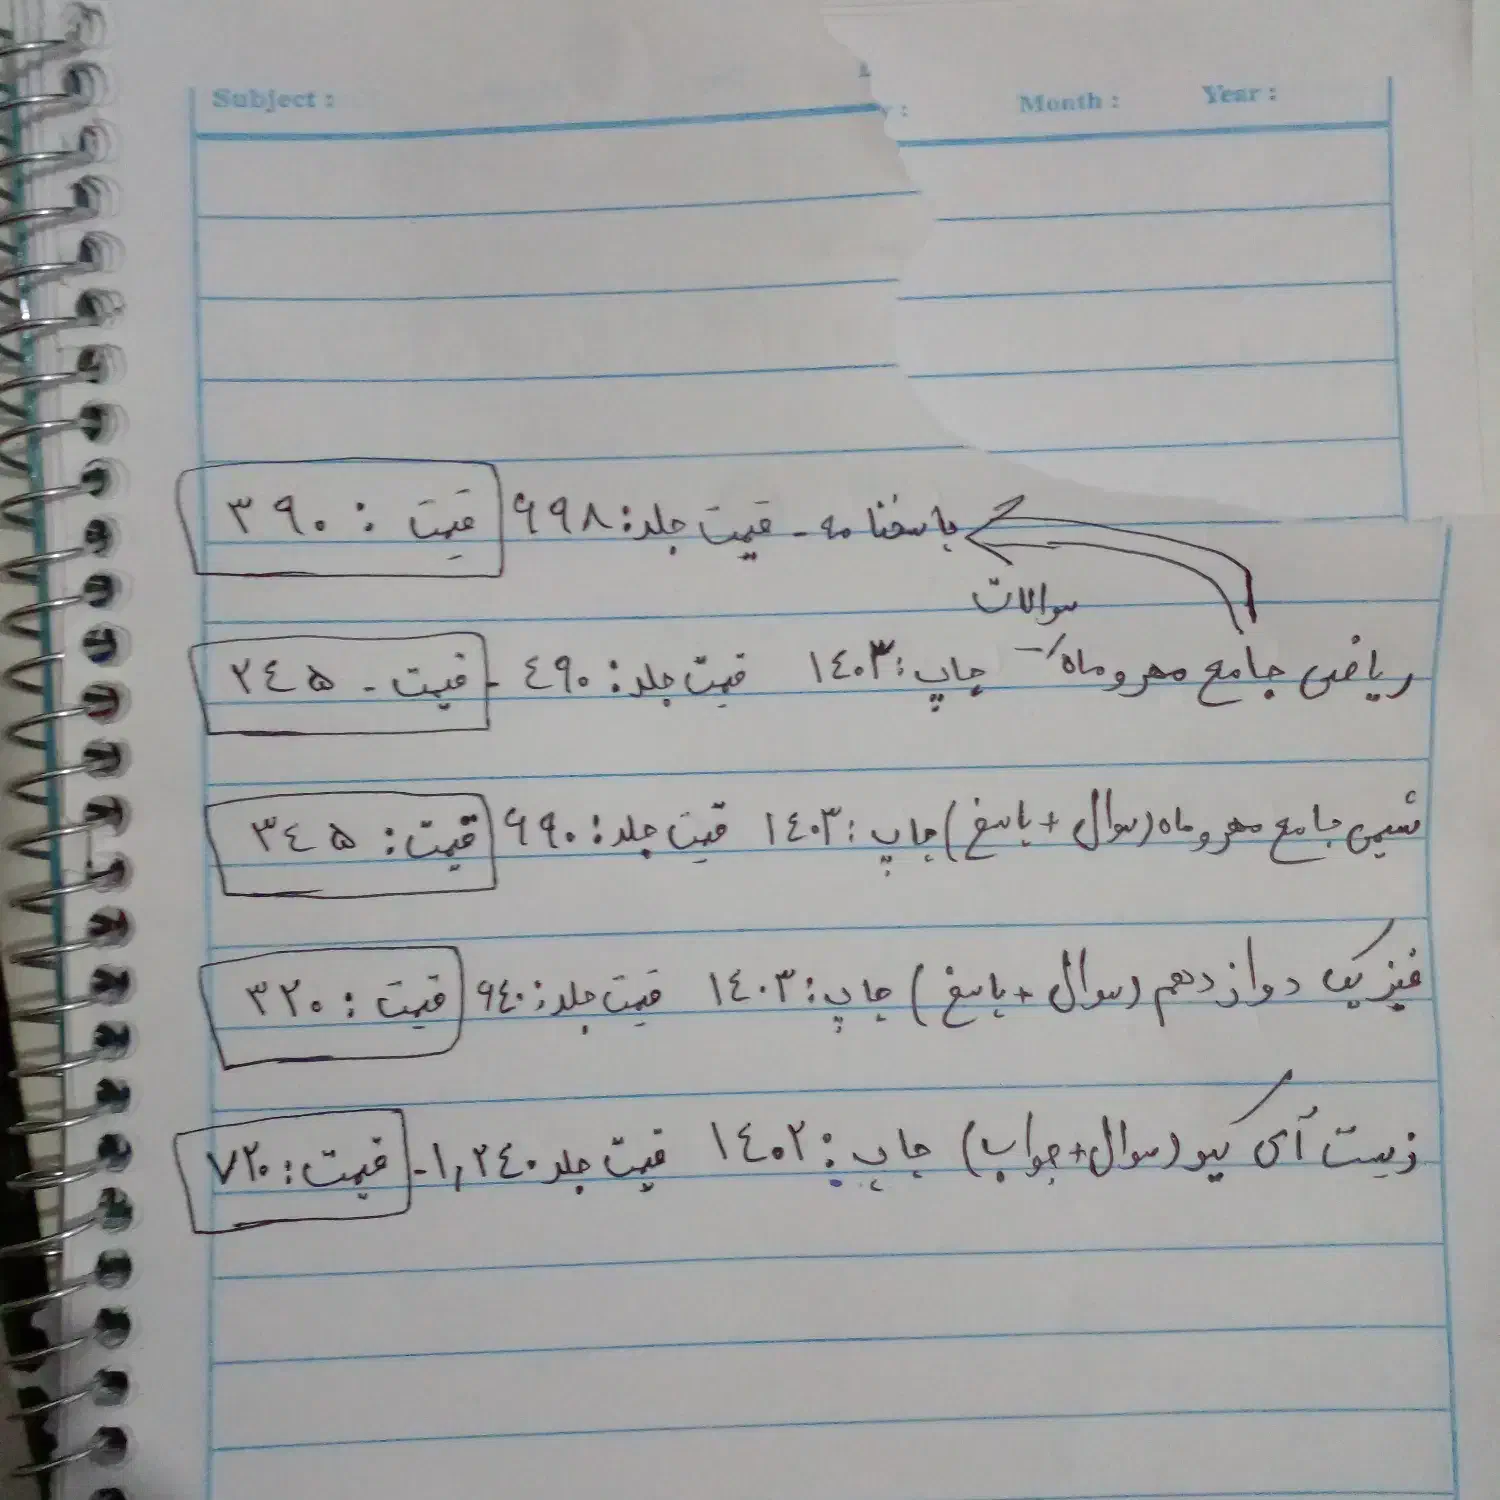 Subject :
Month : Year :
پاسخنامه - قیمت جلد: ۶۹۸ قیمت : ۳۹۰
سوالات
ریاضی جامع مهروماه - چاپ: ۱۴۰۳ قیمت جلد: ۴۹۰ - قیمت - ۲۴۵
شیمی جامع مهروماه (سوال + پاسخ) چاپ: ۱۴۰۳ قیمت جلد: ۶۹۰ قیمت: ۳۴۵
فیزیک دوازدهم (سوال + پاسخ) چاپ: ۱۴۰۳ قیمت جلد: ۶۴۰ قیمت: ۳۲۰
زیست آی کیو (سوال + جواب) چاپ: ۱۴۰۲ قیمت جلد ۱,۲۴۰ - قیمت: ۷۲۰